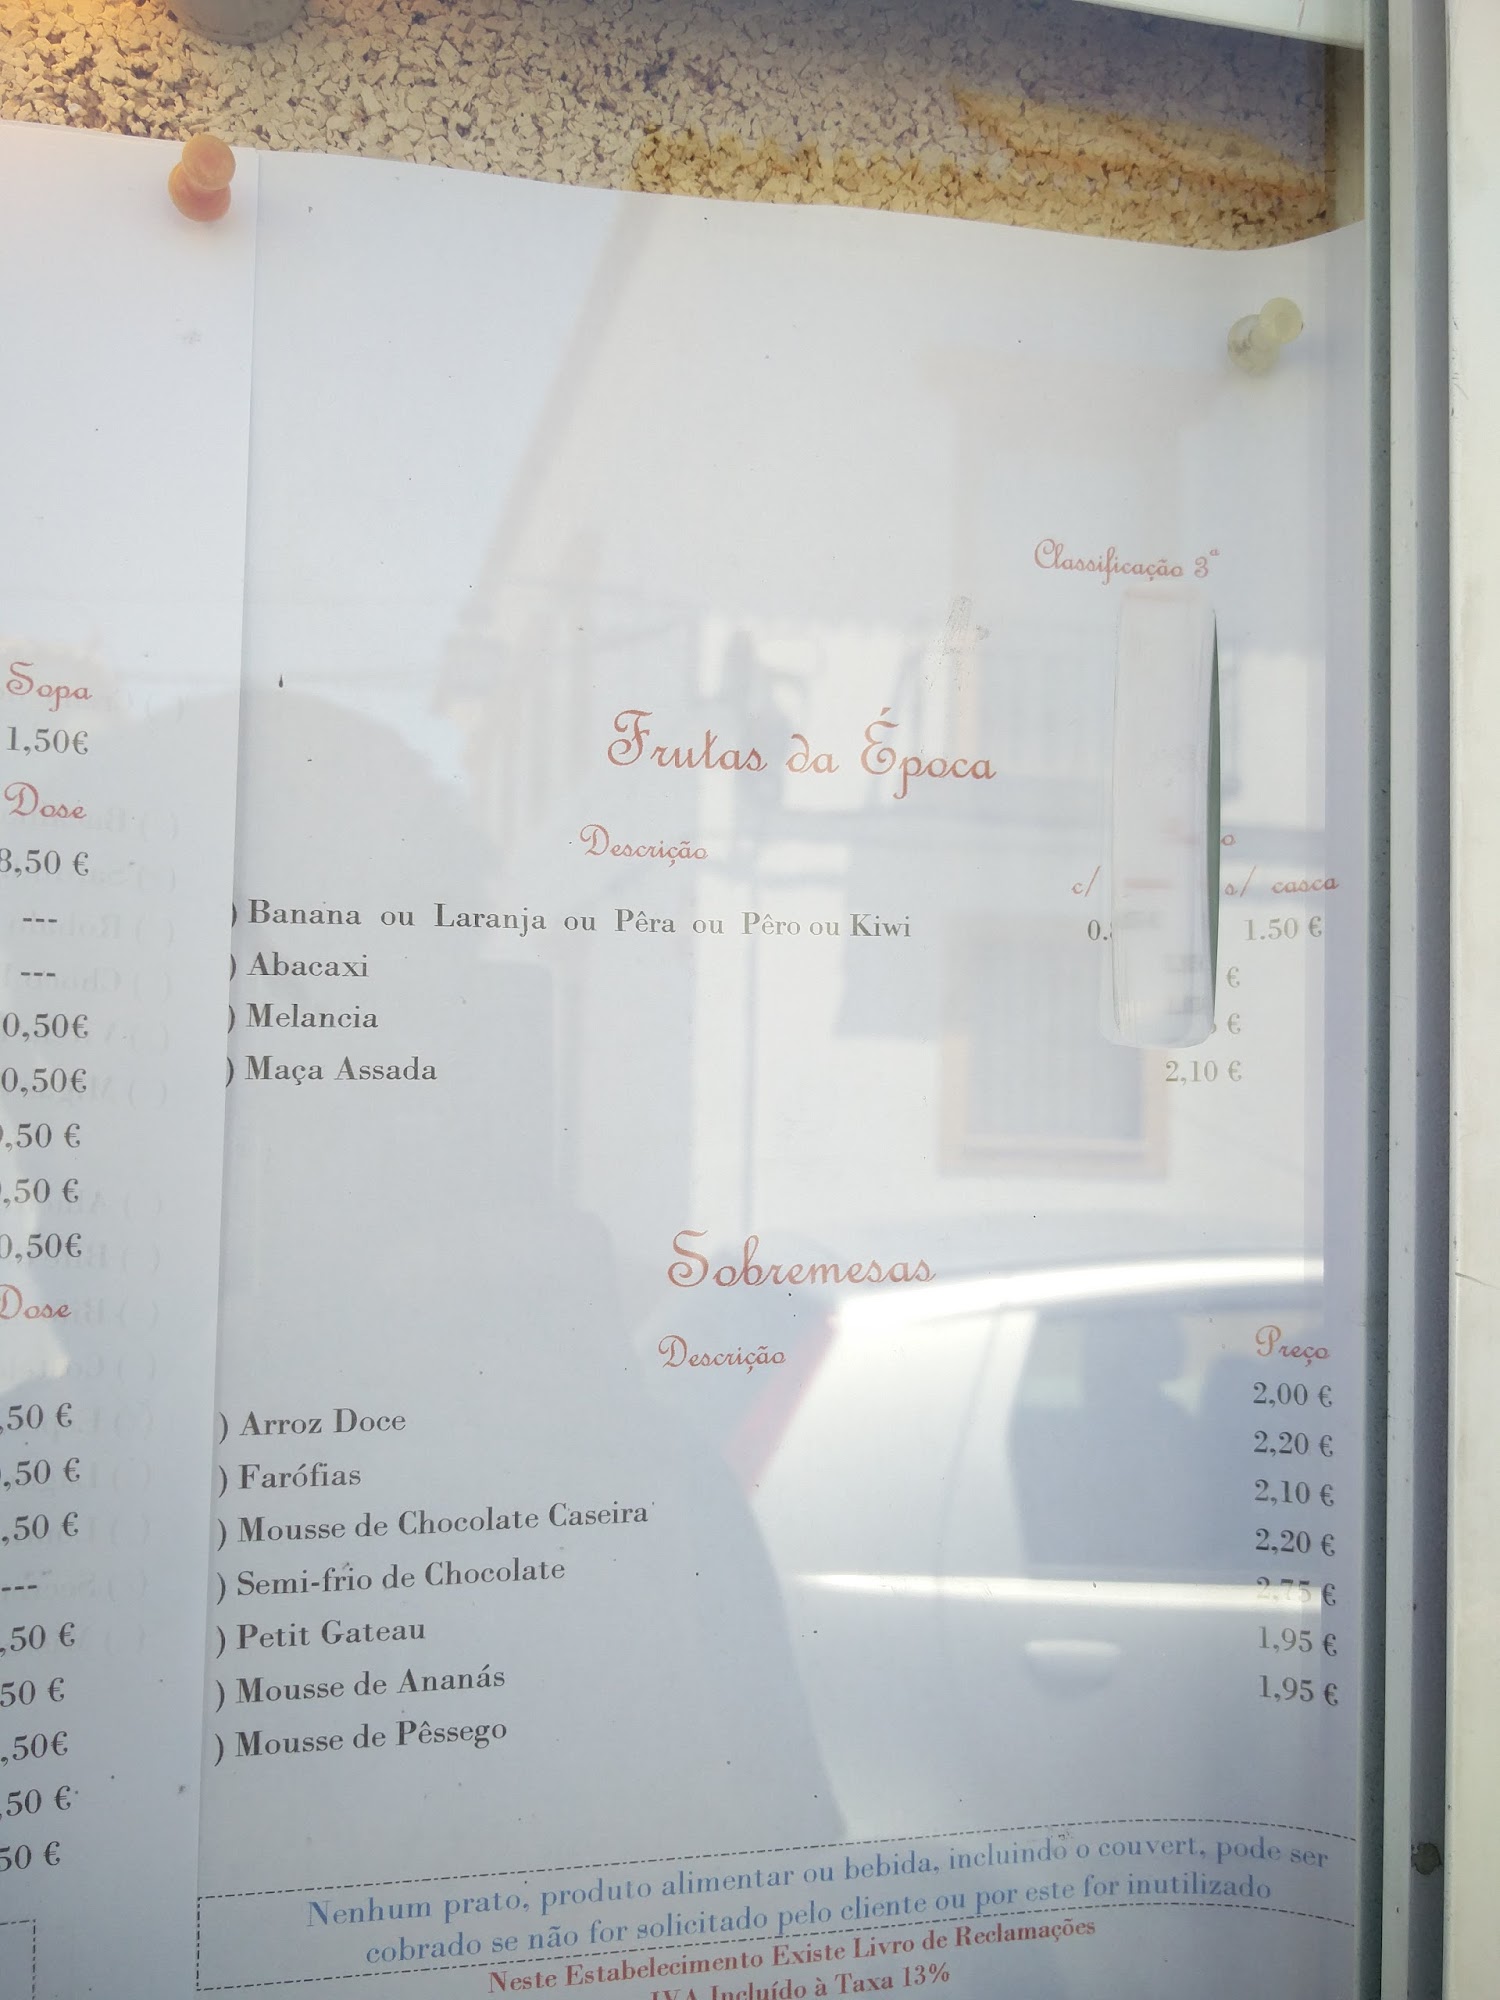 Classificação 3ª
Sopa
1,50€
Dose
8,50 €
---
---
0,50€
0,50€
,50 €
,50 €
0,50€
Dose
,50 €
,50 €
,50 €
---
,50 €
50 €
,50€
,50 €
50 €
Frutas da Época
Descrição
c/ s/ casca
) Banana ou Laranja ou Pêra ou Pêro ou Kiwi 1.50 €
) Abacaxi €
) Melancia €
) Maça Assada 2,10 €
Sobremesas
Descrição Preço
) Arroz Doce 2,00 €
) Farófias 2,20 €
) Mousse de Chocolate Caseira 2,10 €
) Semi-frio de Chocolate 2,20 €
) Petit Gateau 2,75 €
) Mousse de Ananás 1,95 €
) Mousse de Pêssego 1,95 €
Nenhum prato, produto alimentar ou bebida, incluindo o couvert, pode ser
cobrado se não for solicitado pelo cliente ou por este for inutilizado
Neste Estabelecimento Existe Livro de Reclamações
IVA Incluído à Taxa 13%